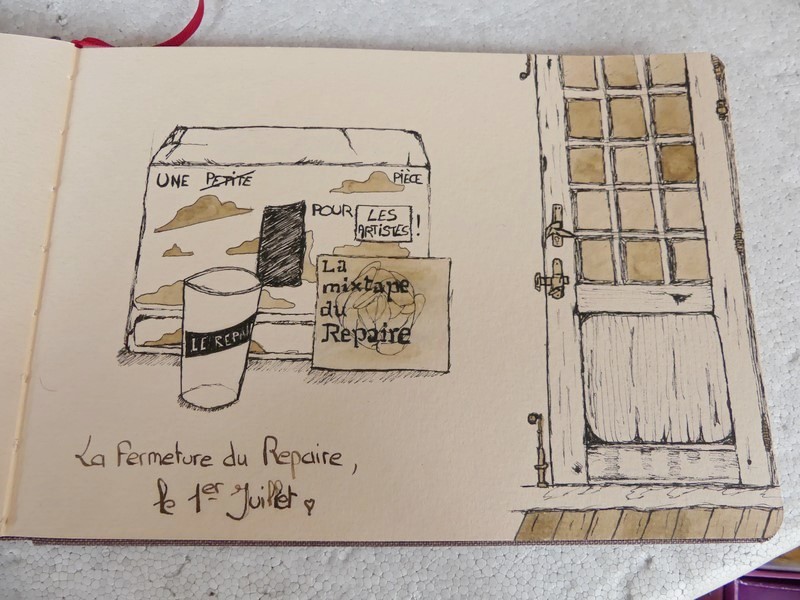 UNE PETITE PIÈCE
POUR LES
ARTISTES !
La
mixtape
du
Repaire
LE REPAI
La fermeture du Repaire,
le 1er Juillet